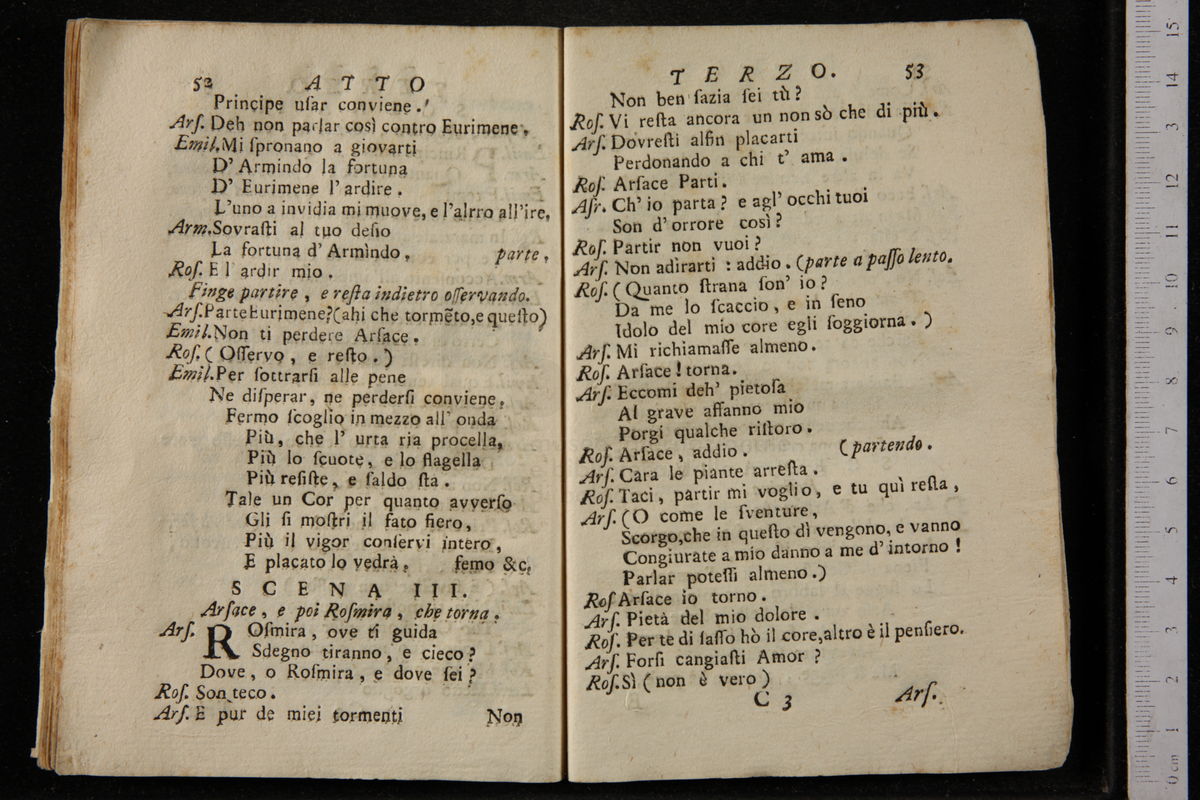 52 ATTO
Principe uſar conviene.
Arſ. Deh non parlar così contro Eurimene.
Emil.Mi ſpronano a giovarti
D' Armindo la fortuna
D' Eurimene l'ardire.
L'uno a invidia mi muove, e l'alrro all'ire,
Arm.Sovraſti al tuo deſio
La fortuna d' Armindo, parte,
Roſ. E l ardir mio.
Finge partire, e reſta indietro oſſervando.
Arſ.Parte Eurimene?(ahi che tormẽto,e queſto)
Emil.Non ti perdere Arſace.
Roſ.( Oſſervo, e reſto.)
Emil.Per ſottrarſi alle pene
Ne diſperar, ne perderſi conviene,
Fermo ſcoglio in mezzo all' onda
Più, che l' urta ria procella,
Più lo ſcuote, e lo flagella
Più reſiſte, e ſaldo ſta.
Tale un Cor per quanto avverſo
Gli ſi moſtri il fato fiero,
Più il vigor conſervi intero,
E placato lo vedrà. femo &c.
SCENA III.
Arſace, e poi Roſmira, che torna.
Arſ. ROſmira, ove ti guida
Sdegno tiranno, e cieco?
Dove, o Roſmira, e dove ſei?
Roſ. Son teco.
Arſ. E pur de miei tormenti Non
TERZO. 53
Non ben ſazia ſei tù?
Roſ. Vi reſta ancora un non sò che di più.
Arſ. Dovreſti alfin placarti
Perdonando a chi t' ama.
Roſ. Arſace Parti.
Aſr. Ch' io parta? e agl' occhi tuoi
Son d' orrore così?
Roſ. Partir non vuoi?
Arſ. Non adirarti : addio. (parte a paſſo lento.
Roſ. (Quanto ſtrana ſon' io?
Da me lo ſcaccio, e in ſeno
Idolo del mio core egli ſoggiorna.)
Arſ. Mi richiamaſſe almeno.
Roſ. Arſace! torna.
Arſ. Eccomi deh' pietoſa
Al grave affanno mio
Porgi qualche riſtoro.
Roſ. Arſace, addio. (partendo.
Arſ. Cara le piante arreſta.
Roſ. Taci, partir mi voglio, e tu quì reſta,
Arſ. (O come le ſventure,
Scorgo,che in queſto dì vengono, e vanno
Congiurate a mio danno a me d' intorno!
Parlar poteſſi almeno.)
Roſ Arſace io torno.
Arſ. Pietà del mio dolore.
Roſ. Per te di ſaſſo hò il core,altro è il penſiero.
Arſ. Forſi cangiaſti Amor?
Roſ.Sì (non è vero)
C 3 Arſ.